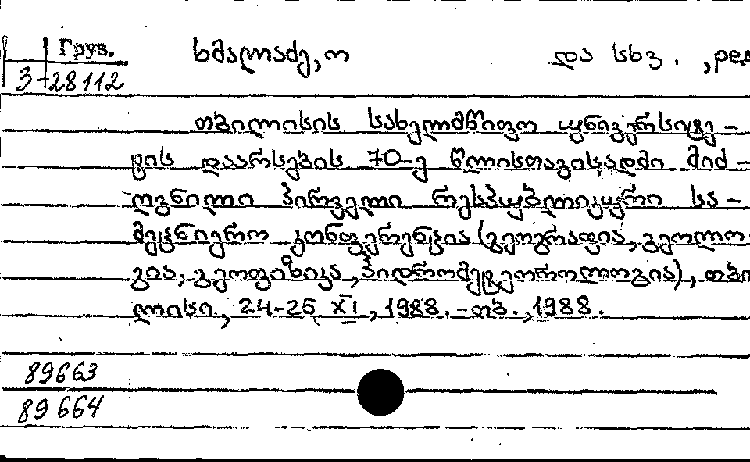 Груз.
ხმალაძე, ო და სხვ. , ред
3-28112
თბილისის სახელმწიფო უნივერსიტე-
ტის დაარსების 70-ე წლისთავისადმი მიძ-
ღვნილი პირველი რესპუბლიკური სა-
მეცნიერო კონფერენცია (გეოგრაფია, გეოლო-
გია, გეოფიზიკა, ჰიდრომეტეოროლოგია), თბი
ლისი, 24-25 XI, 1988. -თბ., 1988.
89663
89664